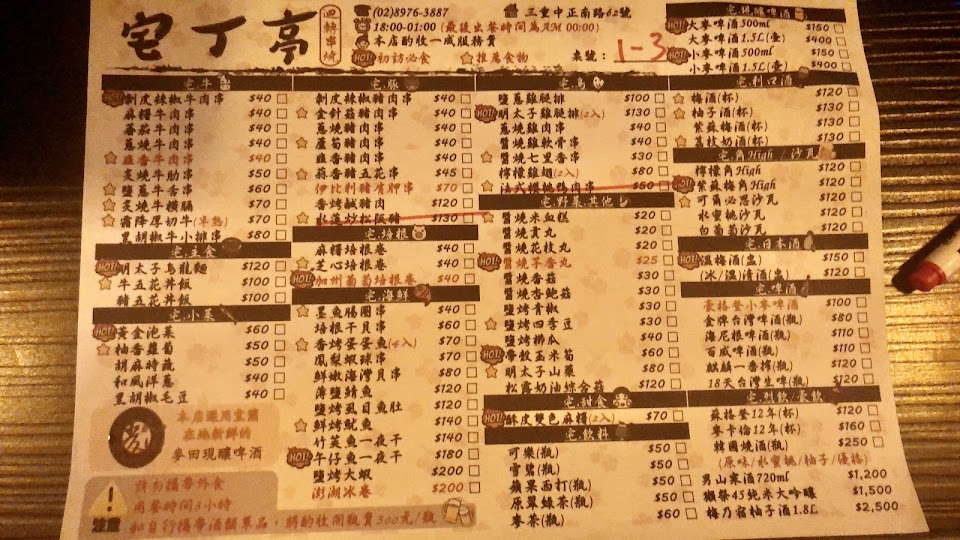 宅丁亭
四轉串燒
(02)8976-3887
三重中正南路62號
18:00-01:00 (最後出餐時間為AM 00:00)
本店酌收一成服務費
HOT! 初訪必食 推薦食物
桌號: 1-3
宅.牛
HOT! 剝皮辣椒牛肉串 $40
麻糬牛肉串 $40
蕃茄牛肉串 $40
蔥燒牛肉串 $40
韭香牛肉串 $40
炙燒牛肋串 $50
鹽蔥牛舌串 $60
炙燒牛橫膈 $70
霜降厚切牛(半熟) $70
黑胡椒牛小排串 $80
宅.主食
HOT! 明太子烏龍麵 $120
牛五花丼飯 $100
豬五花丼飯 $100
宅.小菜
HOT! 黃金泡菜 $60
柚香蘿蔔 $50
胡麻時蔬 $50
和風洋蔥 $40
黑胡椒毛豆 $40
本店選用宜蘭
在地新鮮的
麥田現釀啤酒
請勿攜帶外食
用餐時間3小時
如自行攜帶酒類單品,將酌收開瓶費300元/瓶
注意
宅.豚
剝皮辣椒豬肉串 $40
金針菇豬肉串 $40
蔥燒豬肉串 $40
蘆筍豬肉串 $40
韭香豬肉串 $40
蒜香豬五花串 $45
伊比利豬肩胛串 $70
香烤鹹豬肉 $70
水蓮炒松阪豬 $130
宅.培根
麻糬培根卷 $40
芝心培根卷 $40
HOT! 加州葡萄培根卷 $40
宅.海鮮
墨魚腸圈串 $40
培根干貝串 $60
香烤蛋蛋魚(4入) $70
鳳梨蝦球串 $70
鮮嫩海灣貝串 $80
薄鹽鯖魚 $120
鹽烤虱目魚肚 $120
鮮烤魷魚 $140
竹筴魚一夜干 $140
HOT! 午仔魚一夜干 $180
鹽烤大蝦 $200
澎湖冰卷 $200
宅.鳥
鹽蔥雞腿排 $100
HOT! 明太子雞腿排(2入) $130
蔥燒雞肉串 $40
醬燒雞軟骨串 $40
醬燒七里香串 $30
檸檬雞翅(2入) $80
法式櫻桃鴨肉串 $50
宅.野菜.其他
醬燒米血糕 $20
醬燒貢丸 $20
醬燒花枝丸 $20
HOT! 醬燒芋香丸 $25
醬燒香菇 $30
醬燒杏鮑菇 $30
鹽烤青椒 $30
鹽烤四季豆 $30
鹽烤櫛瓜 $40
HOT! 帶殼玉米筍 $60
明太子山藥 $80
松露奶油綜合菇 $120
宅.甜食
HOT! 酥皮雙色麻糬(2入) $70
宅.飲料
可樂(瓶) $50
雪碧(瓶) $50
蘋果西打(瓶) $50
原翠綠茶(瓶) $50
麥茶(瓶) $60
宅.現釀啤酒
HOT! 大麥啤酒500ml $150
大麥啤酒1.5L(壺) $400
HOT! 小麥啤酒500ml $150
小麥啤酒1.5L(壺) $400
宅.利口酒
梅酒(杯) $120
柚子酒(杯) $130
紫蘇梅酒(杯) $130
荔枝奶酒(杯) $130
宅.角High / 沙瓦
檸檬角High $120
HOT! 紫蘇梅角High $120
可爾必思沙瓦 $120
水蜜桃沙瓦 $120
白葡萄沙瓦 $120
宅.日本酒
HOT! 溫梅酒(壺) $150
(冰/溫)清酒(壺) $120
宅.啤酒
豪格登小麥啤酒 $100
金牌台灣啤酒(瓶) $80
海尼根啤酒(瓶) $110
百威啤酒(瓶) $110
麒麟一番搾(瓶) $120
18天台灣生啤(瓶) $120
宅.烈飲/豪飲
蘇格登12年(杯) $120
麥卡倫12年(杯) $160
韓國燒酒(瓶) $250
(原味/水蜜桃/柚子/優格)
男山寒酒720ml $1,200
獺祭45純米大吟釀 $1,500
梅乃宿柚子酒1.8L $2,500